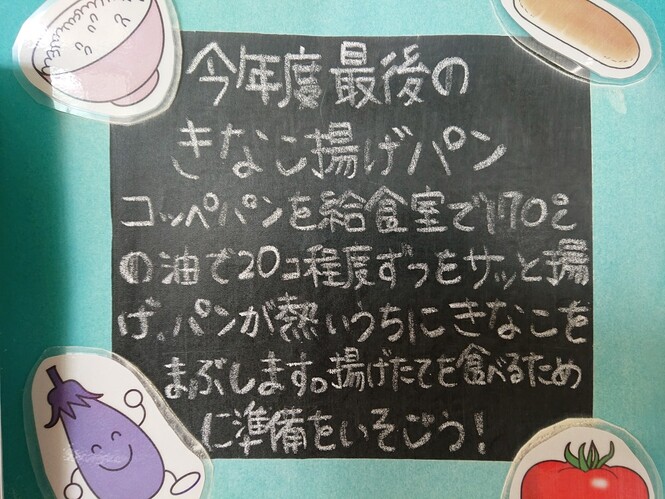 今年度最後の
きなこ揚げパン
コッペパンを給食室で170℃
の油で20コ程度ずつをサッと揚
げ、パンが熱いうちにきなこを
まぶします。揚げたてを食べるため
に準備をいそごう!